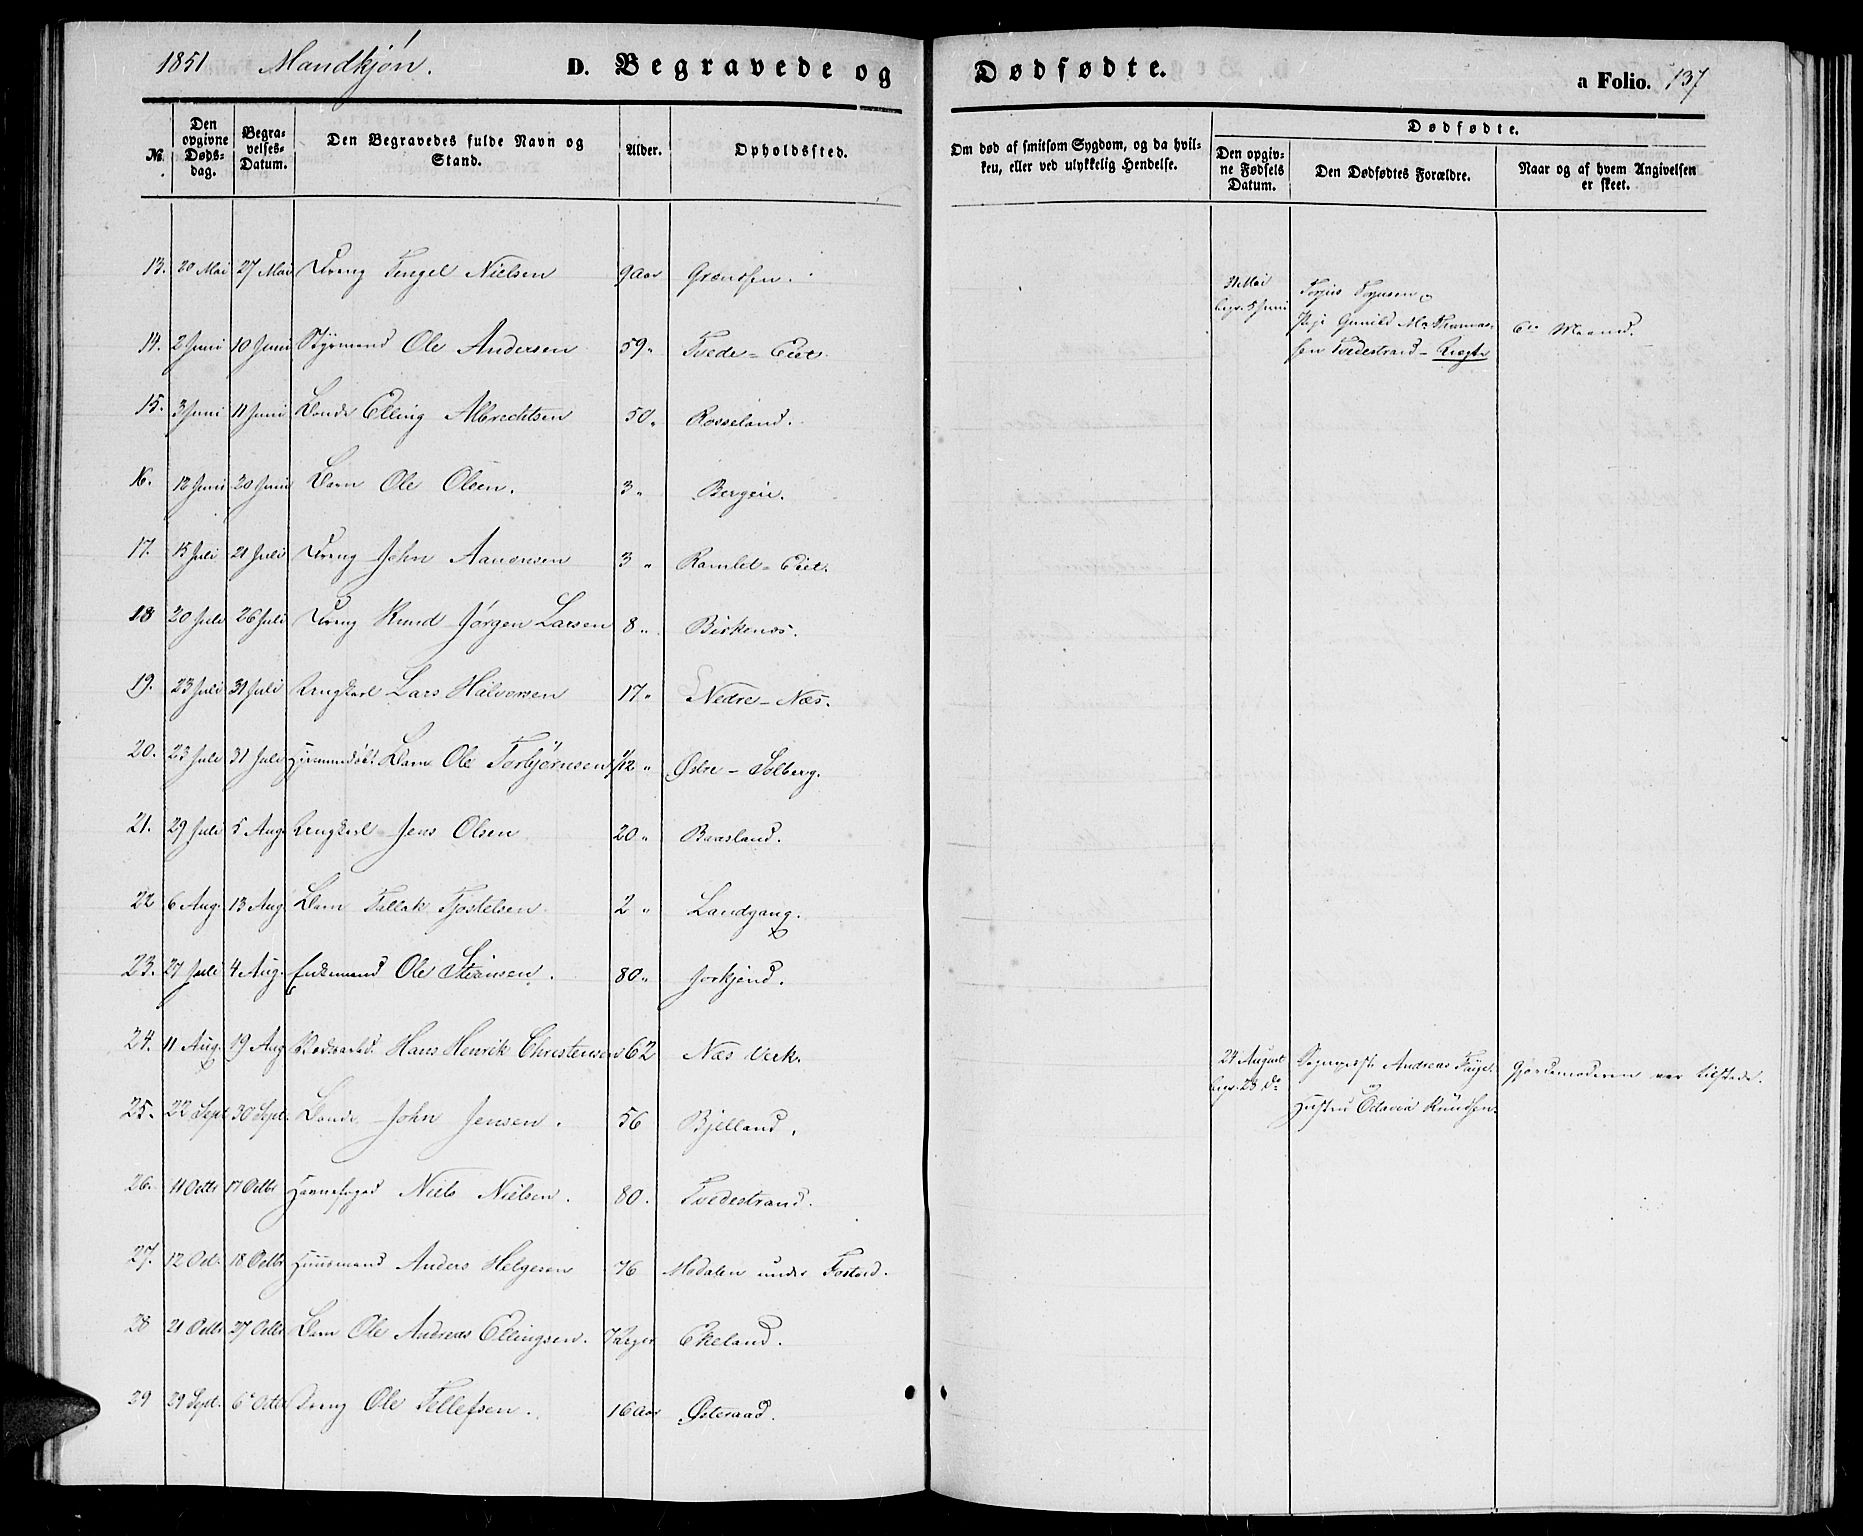 1851 Mandkjön. D. Begravede og Dødfødte. a Folio. 137
No. Den opgivne Døds-dag. Begra-velses-Datum. Den Begravedes fulde Navn og Stand. Alder. Opholdssted. Om død af smitsom Sygdom, og da hvil-ken, eller ved ulykkelig Hendelse. Dødfødte. Den opgiv-ne Fødsels Datum. Den Dødfødtes Forældre. Naar og af hvem Angivelsen er skeet.
13. 20 Mai 27 Mai Dreng Tengel Nielsen 9 Aar Grændsen.
31 Mai
begr. 5 Juni
14. 2 Juni 10 Juni Styrmand Ole Andersen 59 " Tvede-Eiet.
Gunild
Tvedestrand
15. 3 Juni 11 Juni Bonde Elling Albrechtsen 50 " Rosseland.
16. 12 Juni 20 Juni Barn Ole Olsen. 3 " Bergen.
17. 15 Juli 21 Juli Dreng John Aanonsen 3 " Ramlet-Eiet.
18 20 Juli 26 Juli Dreng Knud Jörgen Larsen 8 " Birkenæs.
19. 23 Juli 31 Juli Ungkarl Lars Halvorsen 17 " Nedre-Næs.
20. 23 Juli 31 Juli Hjemmedöbt Barn Ole Torbjörnsen 1/12 " Østre-Solberg.
21. 29 Juli 5 Aug. Ungkarl Jens Olsen 20 " Baasland.
22 6 Aug. 13 Aug. Barn Tallak Tjostelsen 2 " Landgang.
23. 27 Juli 4 Aug. Enkemand Ole Steensen. 80 " Jorkjend.
24. 11 Aug. 19 Aug Hans Henrik Christensen 62 Næs Verk.
24 August
begr. 28 do
Andreas
Gjordemoderen var tilstede.
Hustru Octavia Knudsen.
25. 22 Sept 30 Sept. Bonde John Jensen. 56 Bjelland.
26. 11 Octbr 17 Octbr Havnefoged Niels Nielsen. 80. Tvedestrand.
27. 12 Oct. 18 Octbr Huusmand Anders Helgesen 76 Modalen under Fosted.
28 21 Octbr 27 Octbr Barn Ole Andreas Ellingsen. 7 Uger Ekeland.
29 29 Sept. 6 Octbr Dreng Ole Tellefsen. 16 Aar Østeraad.